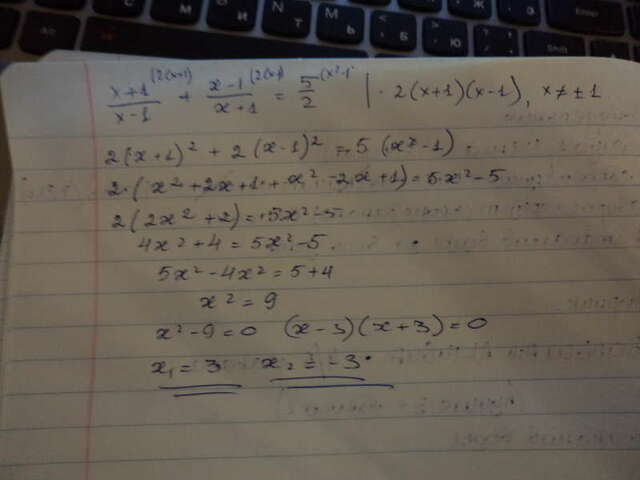 (x+1)/(x-1) ^(2(x+1)) + (x-1)/(x+1) ^(2(x-1)) = 5/2 ^(x²-1) | · 2(x+1)(x-1), x ≠ ±1
2(x+1)² + 2(x-1)² = 5(x²-1)
2·(x²+2x+1+x²-2x+1)=5x²-5
2(2x²+2)=5x²-5
4x²+4=5x²-5
5x²-4x²=5+4
x²=9
x²-9=0 (x-3)(x+3)=0
x₁=3 x₂=-3.